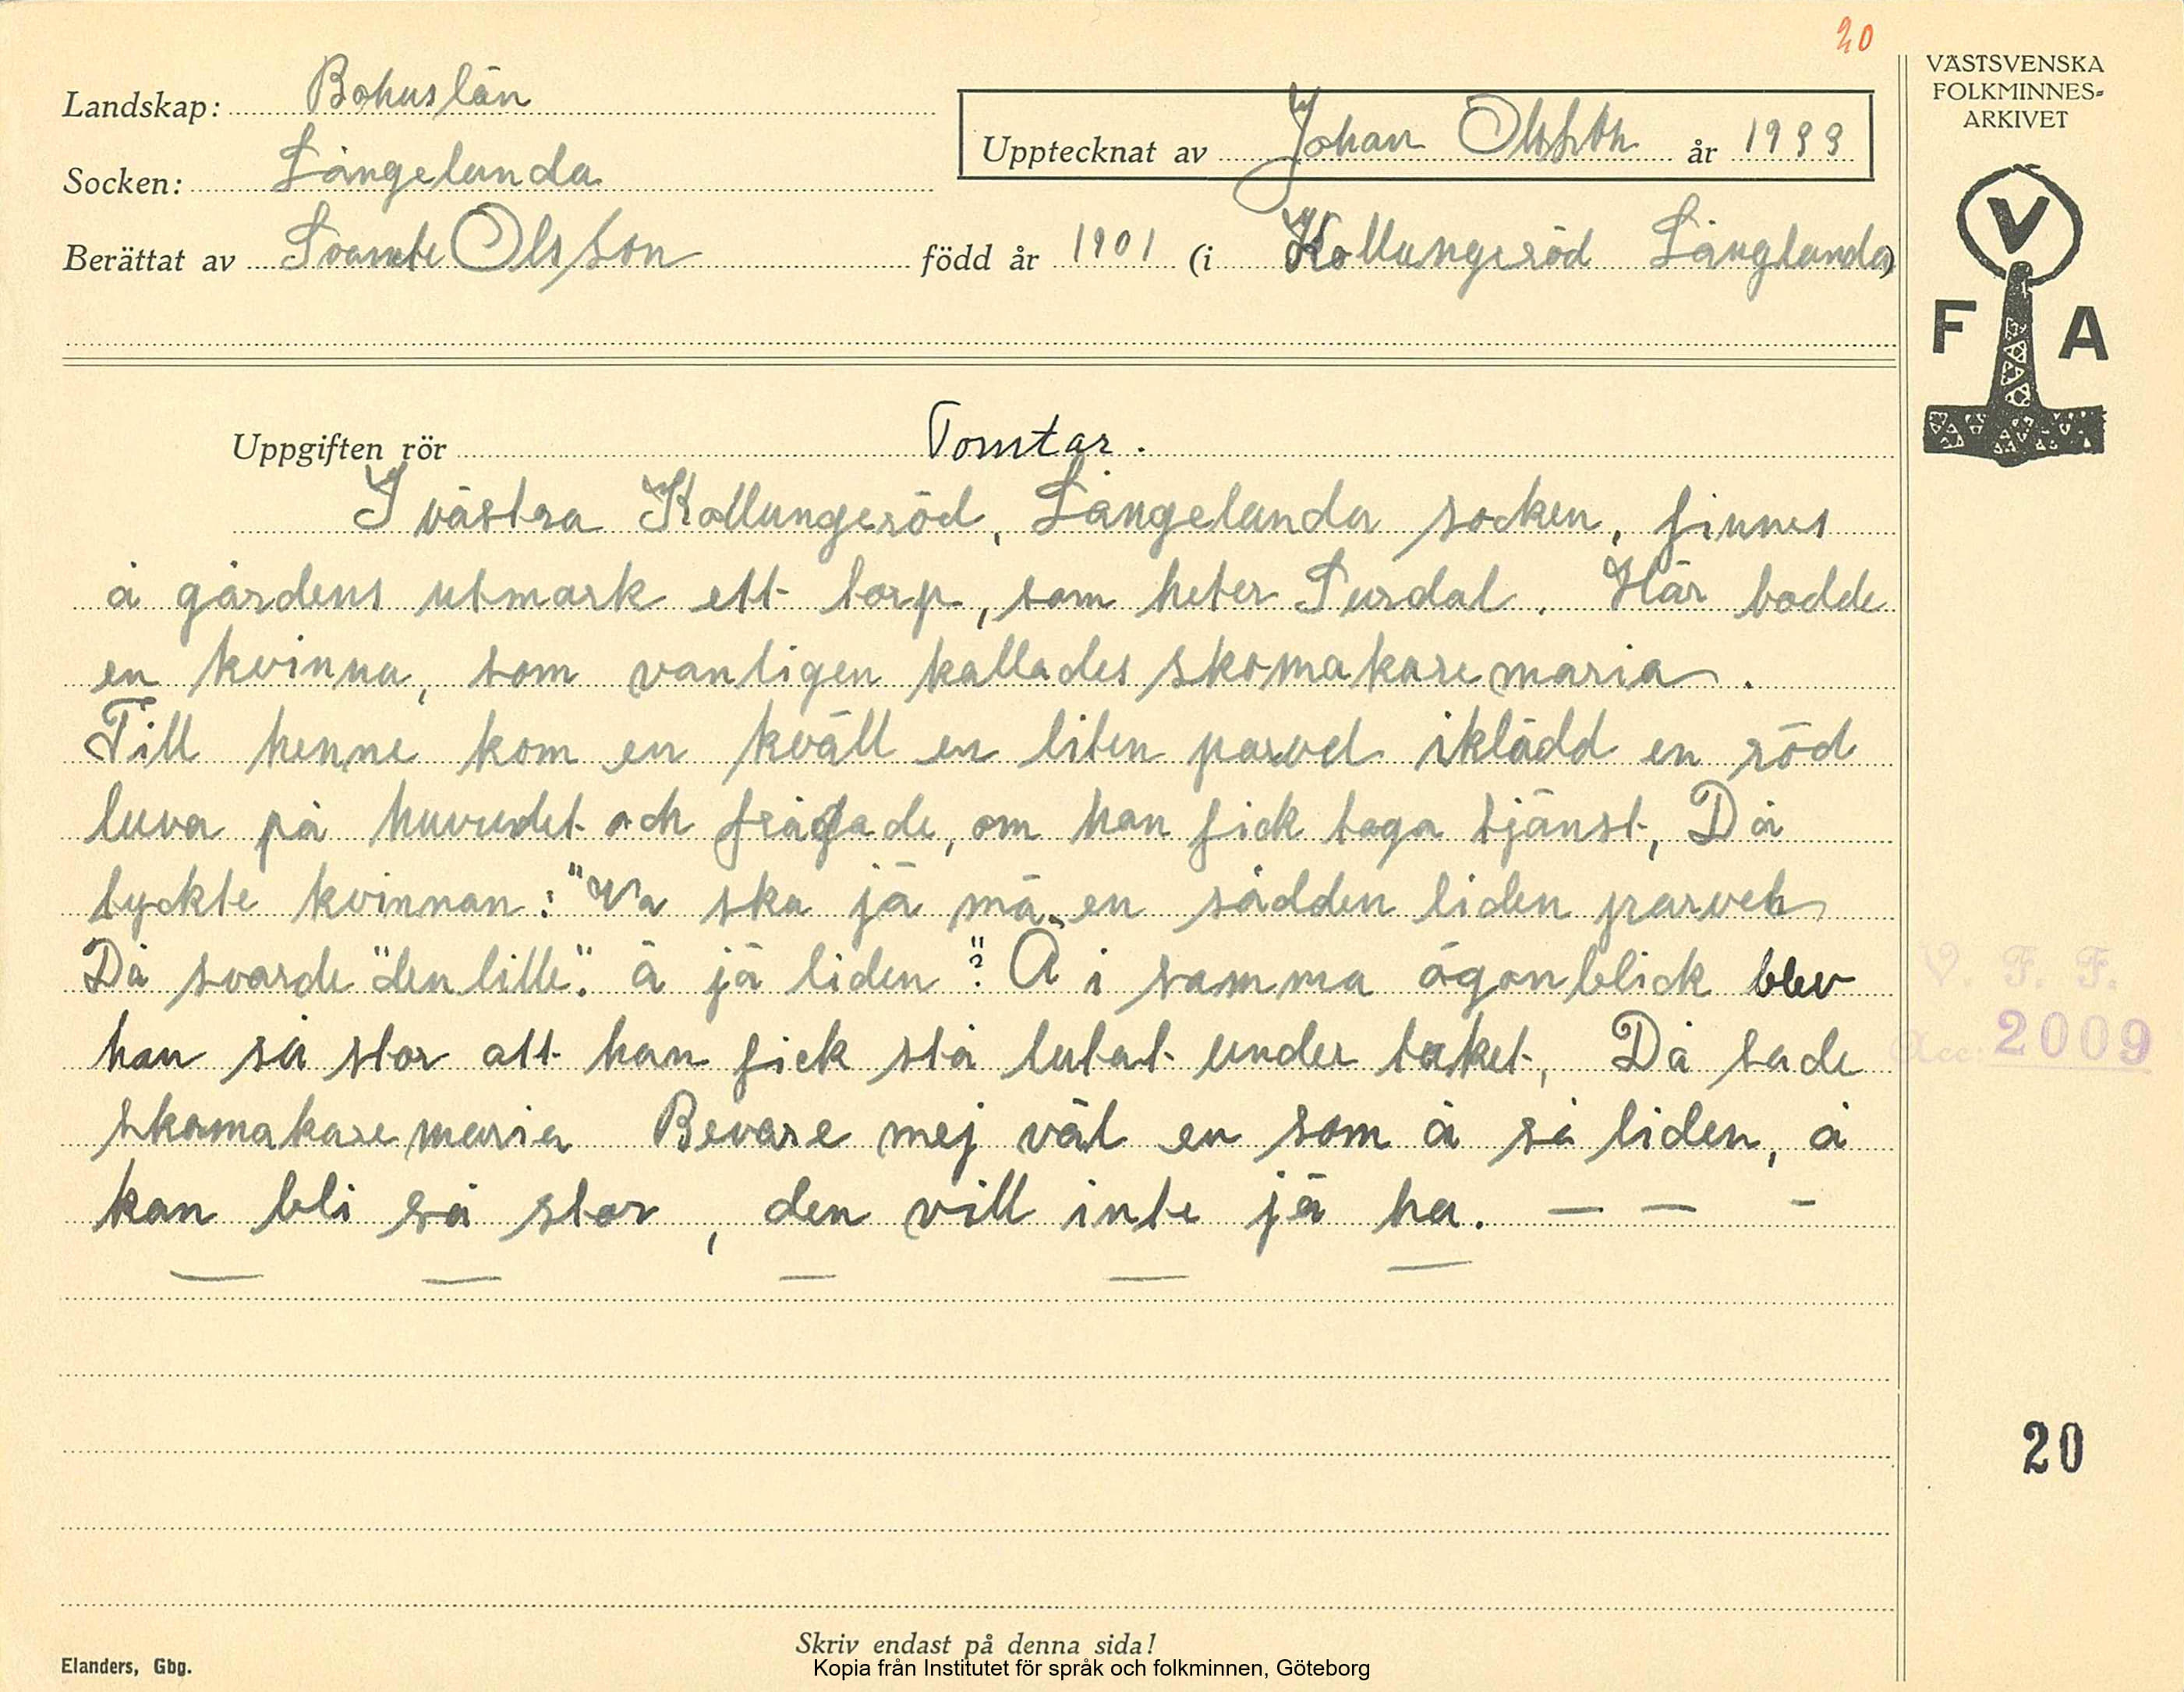 20
VÄSTSVENSKA
FOLKMINNES-
ARKIVET
Landskap: Bohuslän
Upptecknat av Johan Olsson år 1933
Socken: Långelanda
Berättat av Svante Olsson född år 1901 (i Kollungeröd Långlanda)
V
F A
Uppgiften rör Tomtar.
I västra Kollungeröd, Långelanda socken, finnes
å gårdens utmark ett torp, som heter Surdal. Här bodde
en kvinna, som vanligen kallades skomakaremaria.
Till henne kom en kväll en liten parvel iklädd en röd
luva på huvudet och frågade, om han fick taga tjänst, Då
tyckte kvinnan: "Va ska jä mä en sådden liden parvel
Då svarde "den lille". ä jä liden ?" Å i samma ögonblick blev
han så stor att han fick stå lutat under taket, Då sade
skomakaremaria Bevare mej väl en som ä så liden, å
kan bli så stor, den vill inte jä ha. — — -
— — — — —
V. F. F.
Acc: 2009
20
Skriv endast på denna sida!
Elanders, Gbg.
Kopia från Institutet för språk och folkminnen, Göteborg